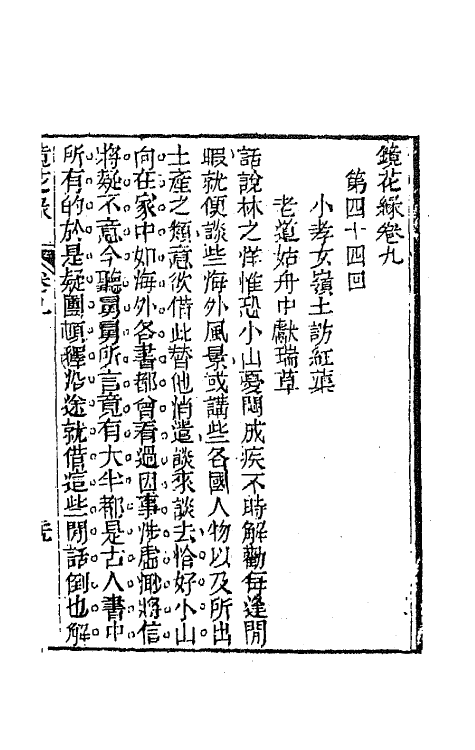 鏡花緣卷九
第四十四回
小孝女嶺上訪紅蕖
老道姑舟中獻瑞草
話說林之洋惟恐小山憂悶成疾不時解勸每逢閒
暇就便談些海外風景或講些各國人物以及所出
土產之類意欲借此替他消遣談來談去恰好小山
向在家中如海外各書都曾看過因事涉虛渺將信
將疑不意今聽舅舅所言竟有大半都是古人書中
所有的於是疑團頓釋沿途就借這些閒話倒也解
鏡花緣
卷九